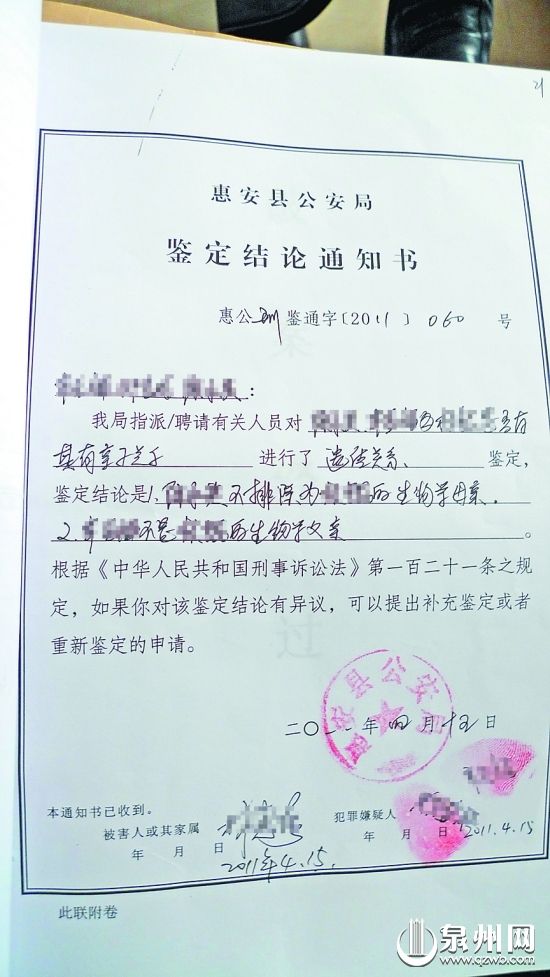 21
惠安县公安局
鉴定结论通知书
惠公刑鉴通字〔2011〕060号
：
我局指派/聘请有关人员对
具有亲子关系进行了遗传关系鉴定，
鉴定结论是1.不排除为的生物学母亲。
2.不是的生物学父亲。
根据《中华人民共和国刑事诉讼法》第一百二十一条之规
定，如果你对该鉴定结论有异议，可以提出补充鉴定或者
重新鉴定的申请。
惠安县公安局
二〇一一年四月十五日
本通知书已收到。
被害人或其家属
年 月 日
2011年4.15.
犯罪嫌疑人
年 月 日
2011.4.15
此联附卷
泉州网
www.qzwb.com